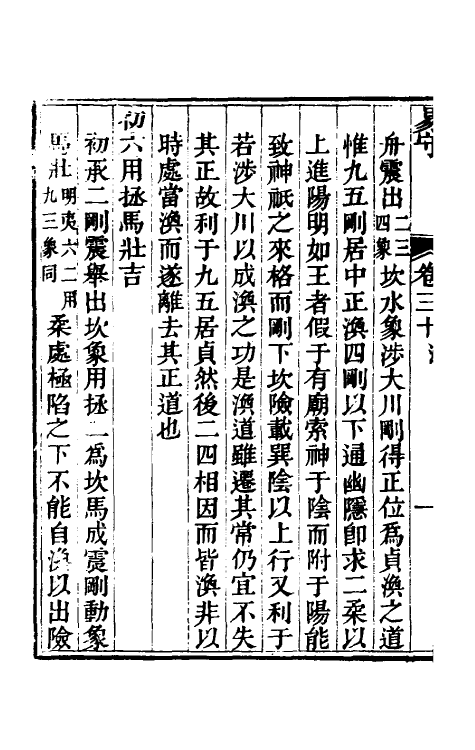 易守 卷三十 渙 一
舟震出二三四象坎水象涉大川剛得正位爲貞渙之道
惟九五剛居中正渙四剛以下通幽隱卽求二柔以
上進陽明如王者假于有廟索神于陰而附于陽能
致神祇之來格而剛下坎險載巽陰以上行又利于
若涉大川以成渙之功是渙道雖遷其常仍宜不失
其正故利于九五居貞然後二四相因而皆渙非以
時處當渙而遂離去其正道也
初六用拯馬壯吉
初承二剛震舉出坎象用拯二爲坎馬成震剛動象
馬壯明夷六二用九三象同柔處極陷之下不能自渙以出險